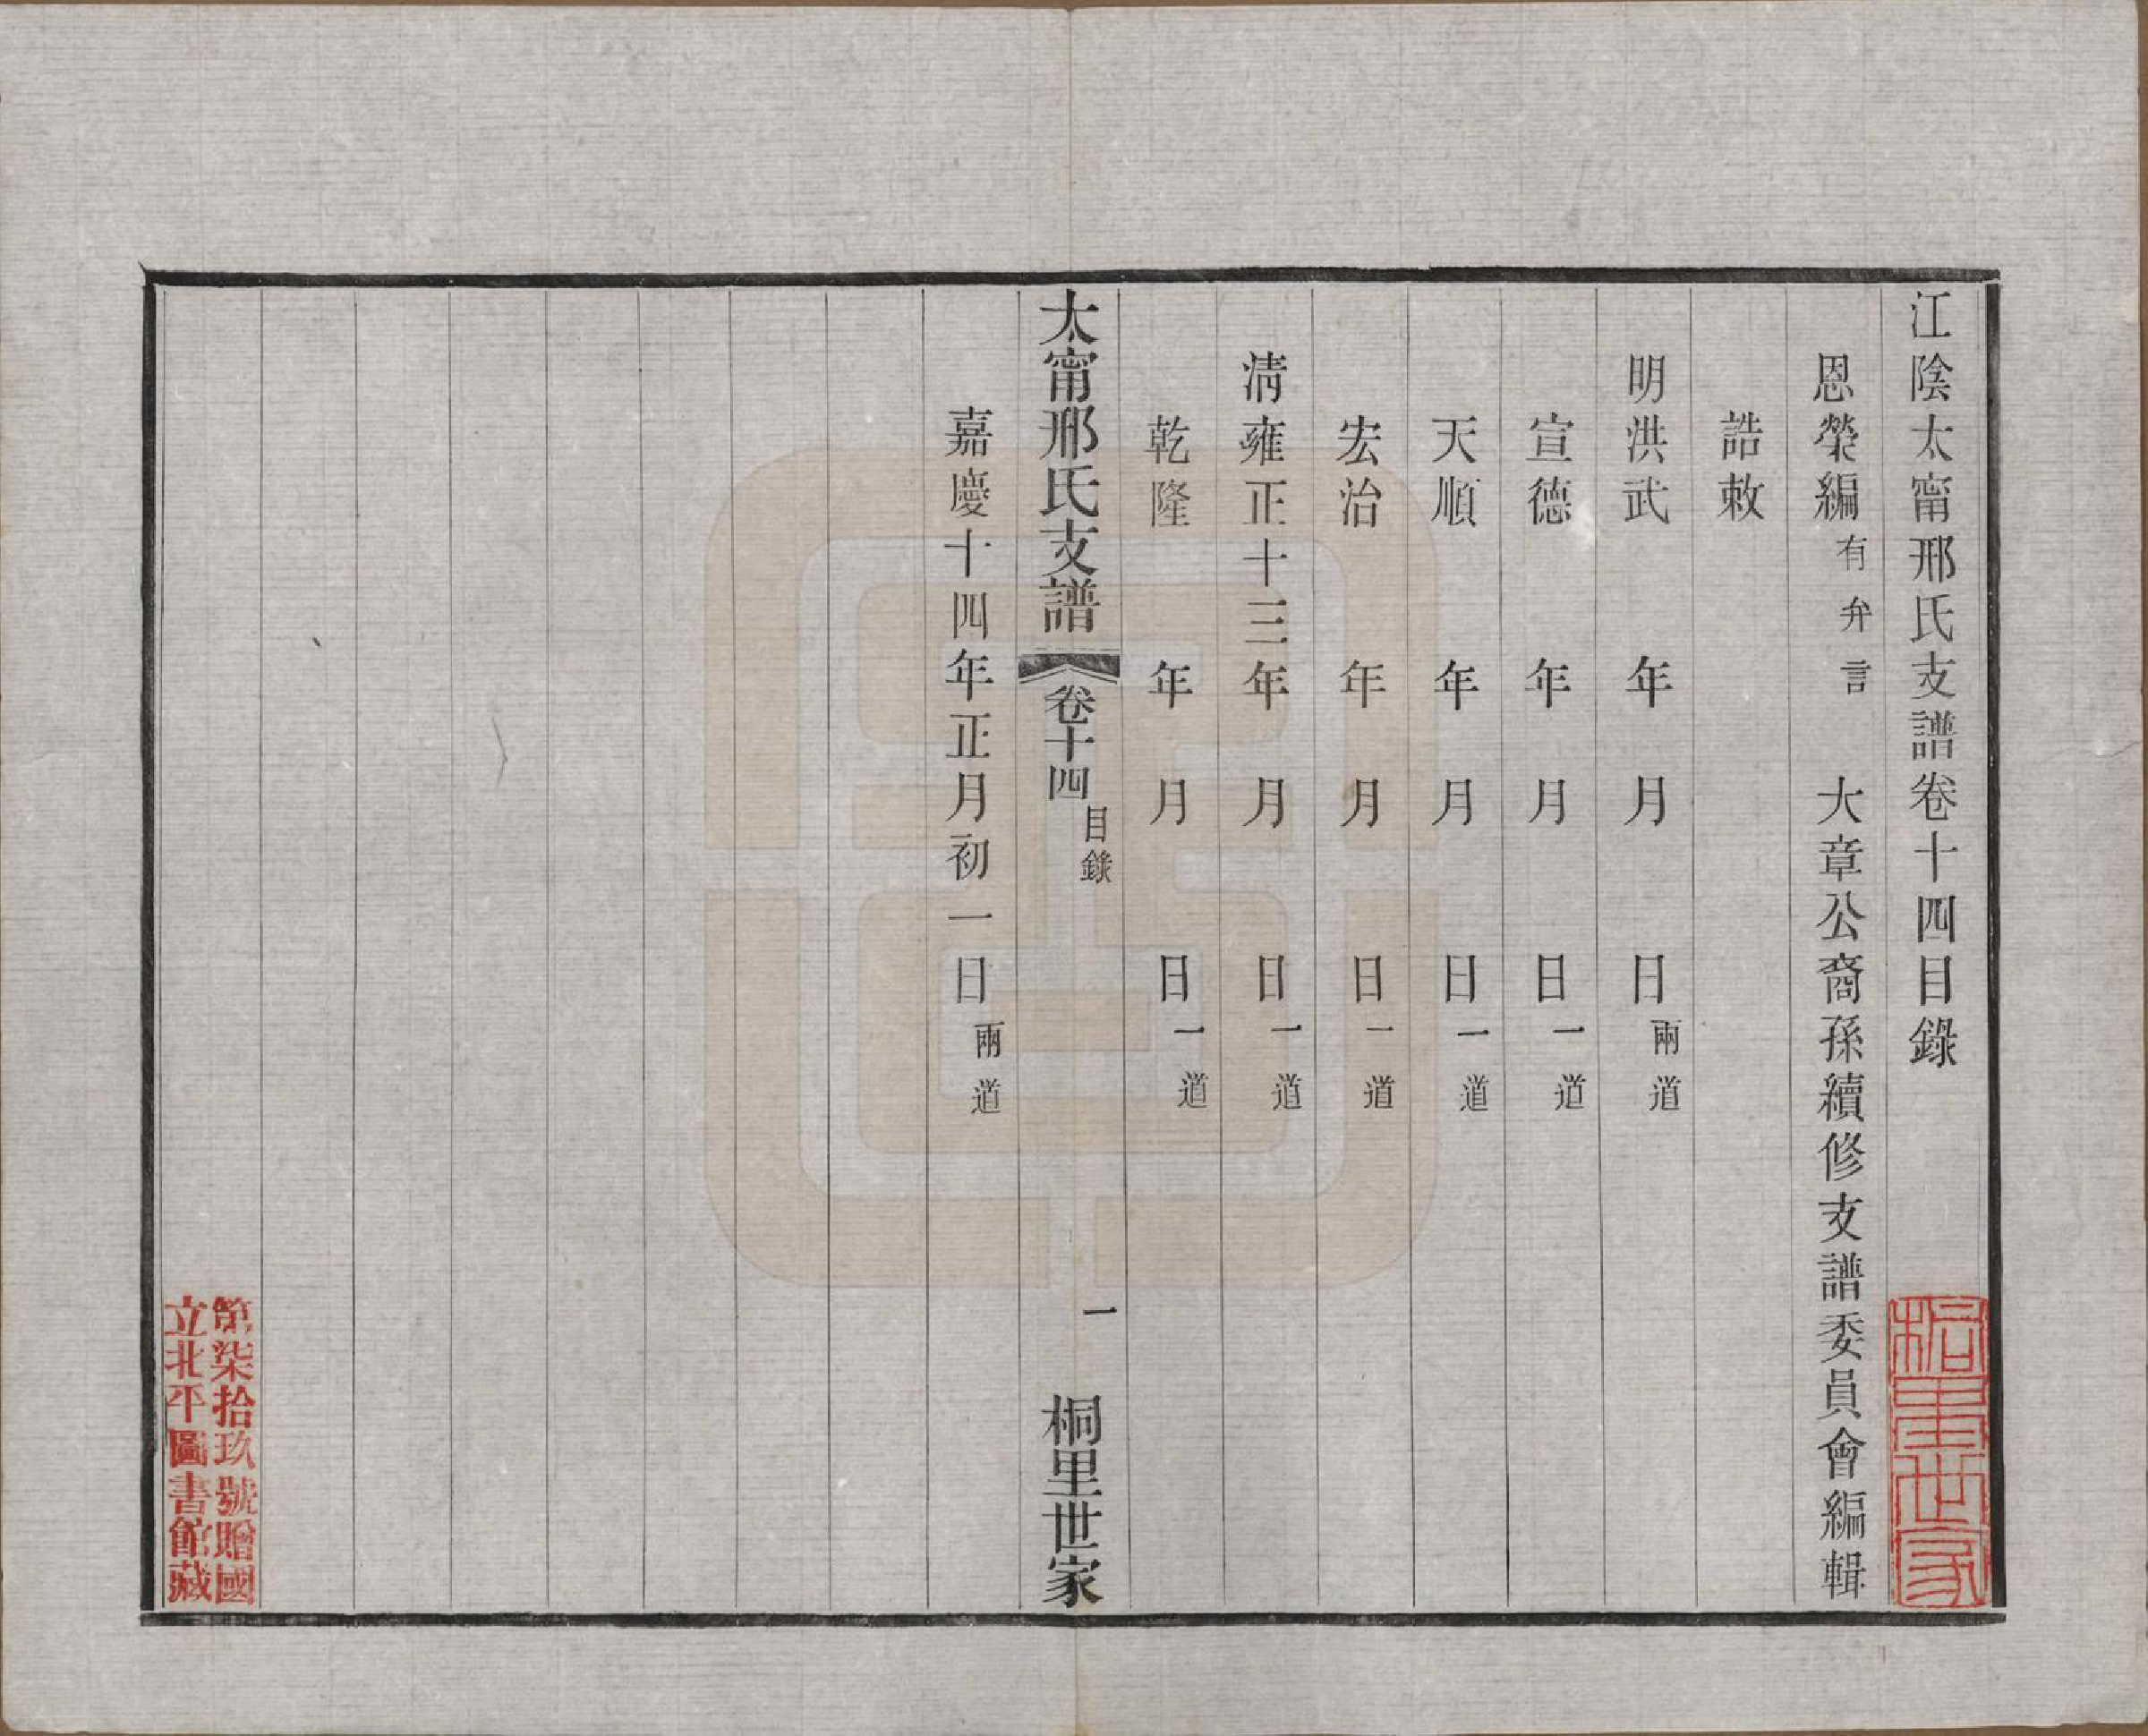 江陰太甯邢氏支譜卷十四目錄
桐里世家
恩榮編有弁言 大章公裔孫續修支譜委員會編輯
誥敕
明洪武 年 月 日兩道
宣德 年 月 日一道
天順 年 月 日一道
宏治 年 月 日一道
清雍正十三年 月 日一道
乾隆 年 月 日一道
太甯邢氏支譜 卷十四 目錄 一 桐里世家
嘉慶十四年正月初一日兩道
第柒拾玖號贈國
立北平圖書館藏